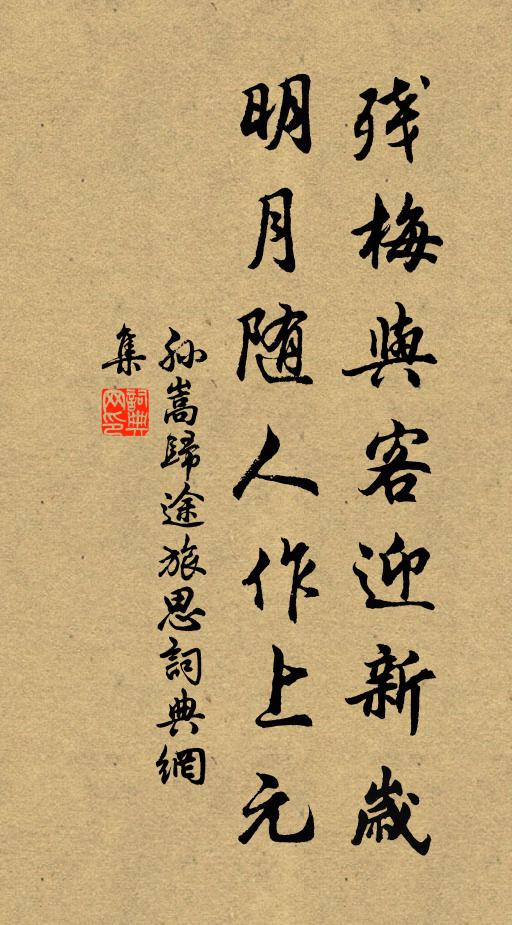 残梅與客迎新歲
明月随人作上元
孙嵩歸途旅思詞典網
集
詞典网印